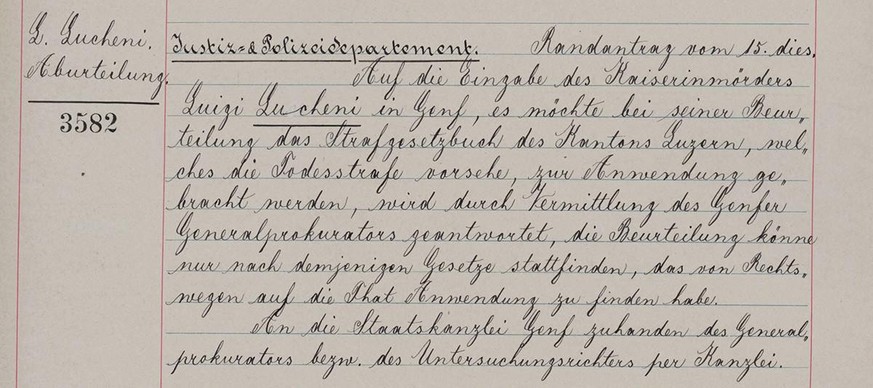 L. Lucheni.
Aburteilung.
3582
Justiz=& Polizeidepartement. Randantrag vom 15. dies.
Auf die Eingabe des Kaiserinmörders
Luigi Lucheni in Genf, es möchte bei seiner Beur„
teilung das Strafgesetzbuch des Kantons Luzern, wel„
ches die Todesstrafe vorsehe, zur Anwendung ge„
bracht werden, wird durch Vermittlung des Genfer
Generalprokurators geantwortet, die Beurteilung könne
nur nach demjenigen Gesetze stattfinden, das von Rechts„
wegen auf die That Anwendung zu finden habe.
An die Staatskanzlei Genf zuhanden des General„
prokurators bezw. des Untersuchungsrichters per Kanzlei.